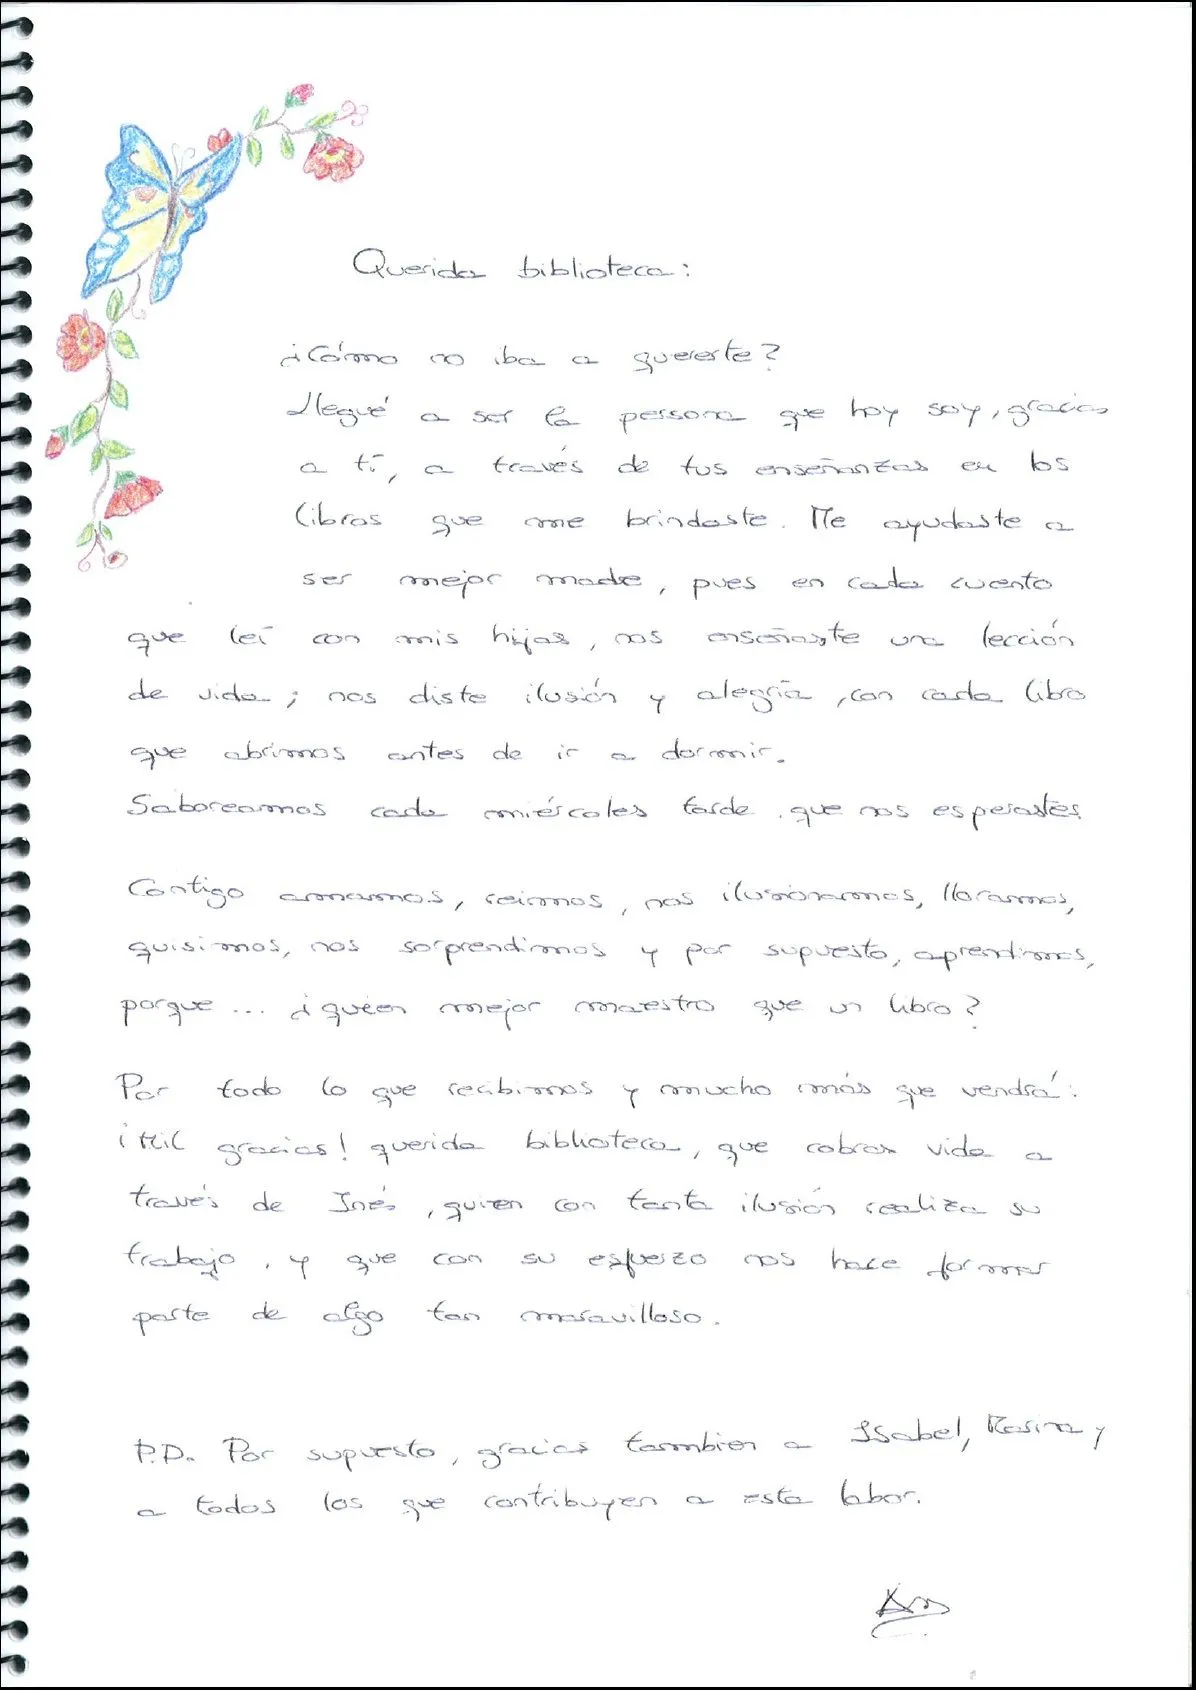 Querida biblioteca:
¿Cómo no iba a quererte?
Llegué a ser la persona que hoy soy, gracias
a tí, a través de tus enseñanzas en los
libros que me brindaste. Me ayudaste a
ser mejor madre, pues en cada cuento
que leí con mis hijas, nos enseñaste una lección
de vida; nos diste ilusión y alegría, con cada libro
que abrimos antes de ir a dormir.
Saboreamos cada miércoles tarde, que nos esperastes
Contigo amamos, reimos, nos ilusionamos, lloramos,
quisimos, nos sorprendimos y por supuesto, aprendimos,
porque... ¿quién mejor maestro que un libro?
Por todo lo que recibimos y mucho más que vendrá:
¡Mil gracias! querida biblioteca, que cobras vida a
través de Inés, quien con tanta ilusión realiza su
trabajo, y que con su esfuerzo nos hace formar
parte de algo tan maravilloso.
P.D. Por supuesto, gracias tambien a Isabel, y
a todos los que contribuyen a esta labor.